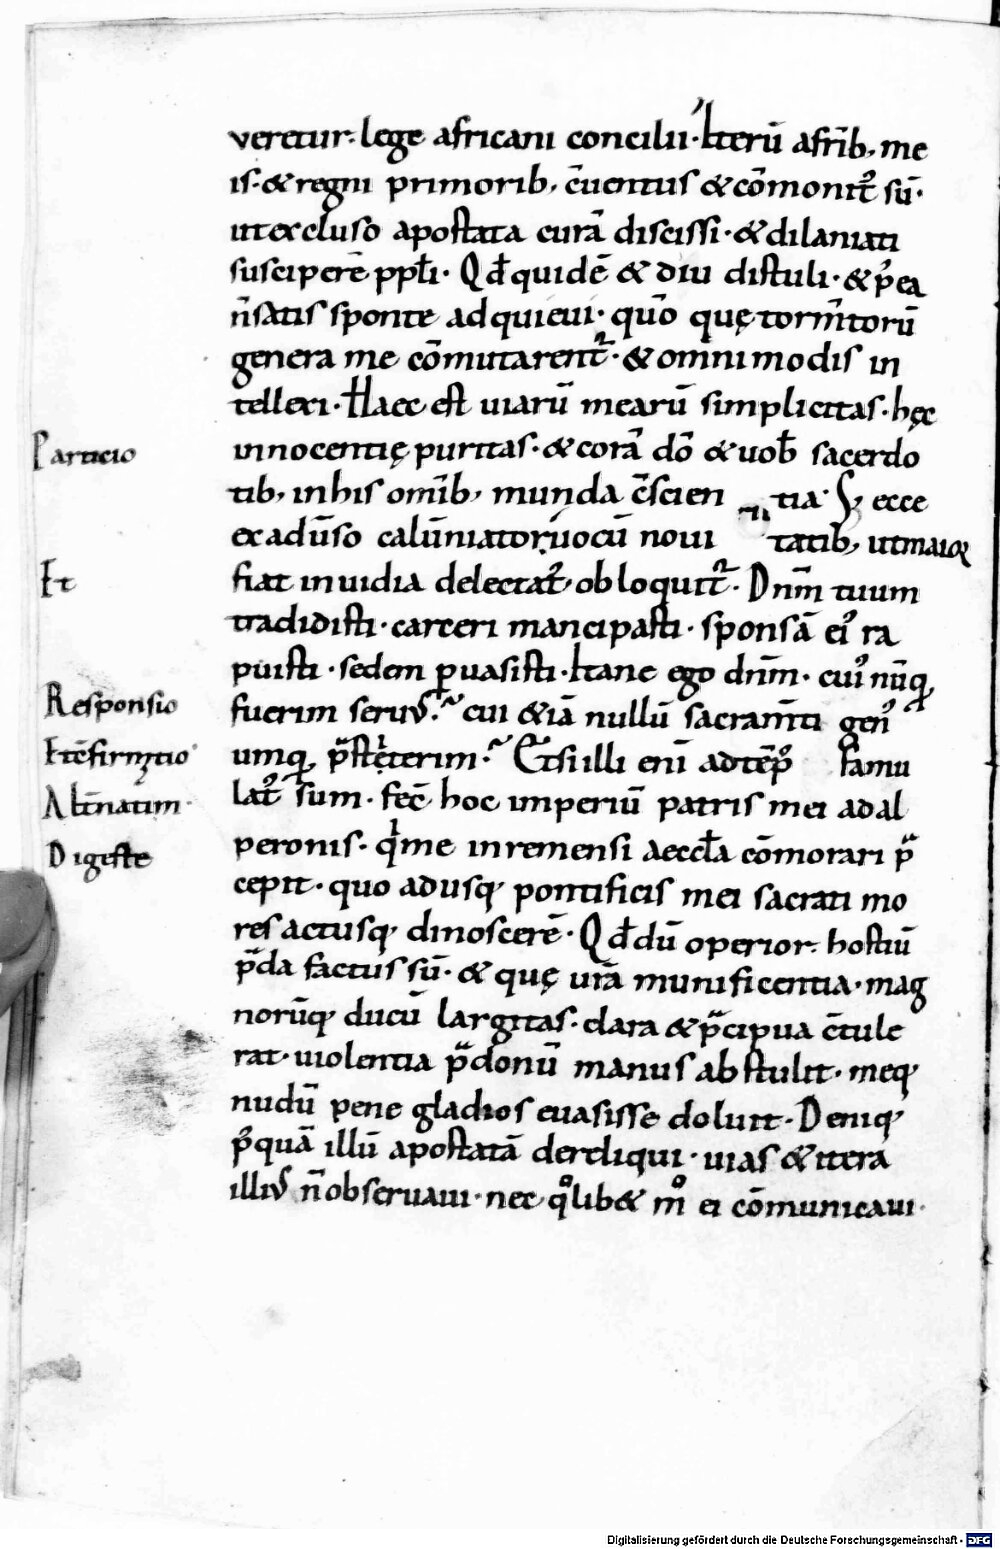 veretur. lege africani concilii. Iterū afrīb, me
is. & regni primorib, c̄uentus & cōmonit᷒ sū.
ut excluso apostata curā discissi. & dilaniati
susciperē ppłi. Qđ quidē & diu distuli. & p᷒ ea
n̄ satis sponte adquieui. quō quę torm̄torū
genera me cōmutarent᷒. & omnimodis in
tellexi. Haec est uiarū mearū simplicitas. hęc
Particio
innocentię puritas. & corā dō & uob̄ sacerdo
tib, in his om̄ib, munda c̄scientia. S; ecce
ex adūso calūniatorū uocū nouitatib, ut maior
Et
fiat inuidia delectat᷒. obloquit᷒. Dnm̄ tuum
tradidisti. carceri mancipasti. sponsā ei᷒ ra
puisti. sedem ꝑuasisti. Hanc ego dnm̄. cui᷒ nūq,
Responsio
fuerim seruus. cui & iā nullū sacram̄ti gen᷒
Et c̄firmatio
umq, p̄stiterim. Etsi illi enī ad tēp᷒ famu
Alt̄natim.
lat᷒ sum. fec̄ hoc imperiū patris mei adal
Digeste
peronis. qi me in remensi aeccła cōmorari p̄
cepit. quo adusq, pontificis mei sacrati mo
res actusq, dinoscerē. Qđ dū operior. hostiū
p̄da factus sū. & quę ur̄a munificentia. mag
norūq, ducū largitas. clara & p̄cipua c̄tule
rat. uiolentia p̄donū manus abstulit. meq,
nudū pene gladios euasisse doluit. Deniq,
p᷒quā illū apostatā dereliqui. uias & itera
illius n̄ obseruaui. nec qolib& mo ei cōmunicaui.
Digitalisierung gefördert durch die Deutsche Forschungsgemeinschaft - DFG